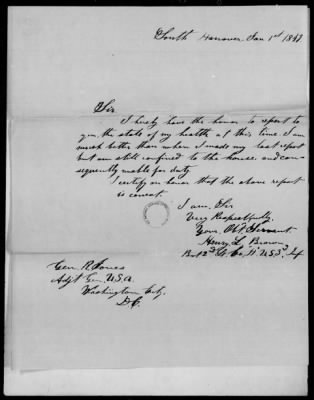 South Hanover Jan 1st 1847
Sir
I hereby have the honor to report to
you the state of my health at this time I am
much better than when I made my last report
but am still confined to the house and con-
sequently unable for duty
I certify on honor that the above report
is correct.
I am Sir
Very Respectfully
Your Obt. Servant
Henry L Brown
2d Lt Co U.S.
Gen. R Jones
Adjt Gen. U.S.A.
Washington City
D.C.